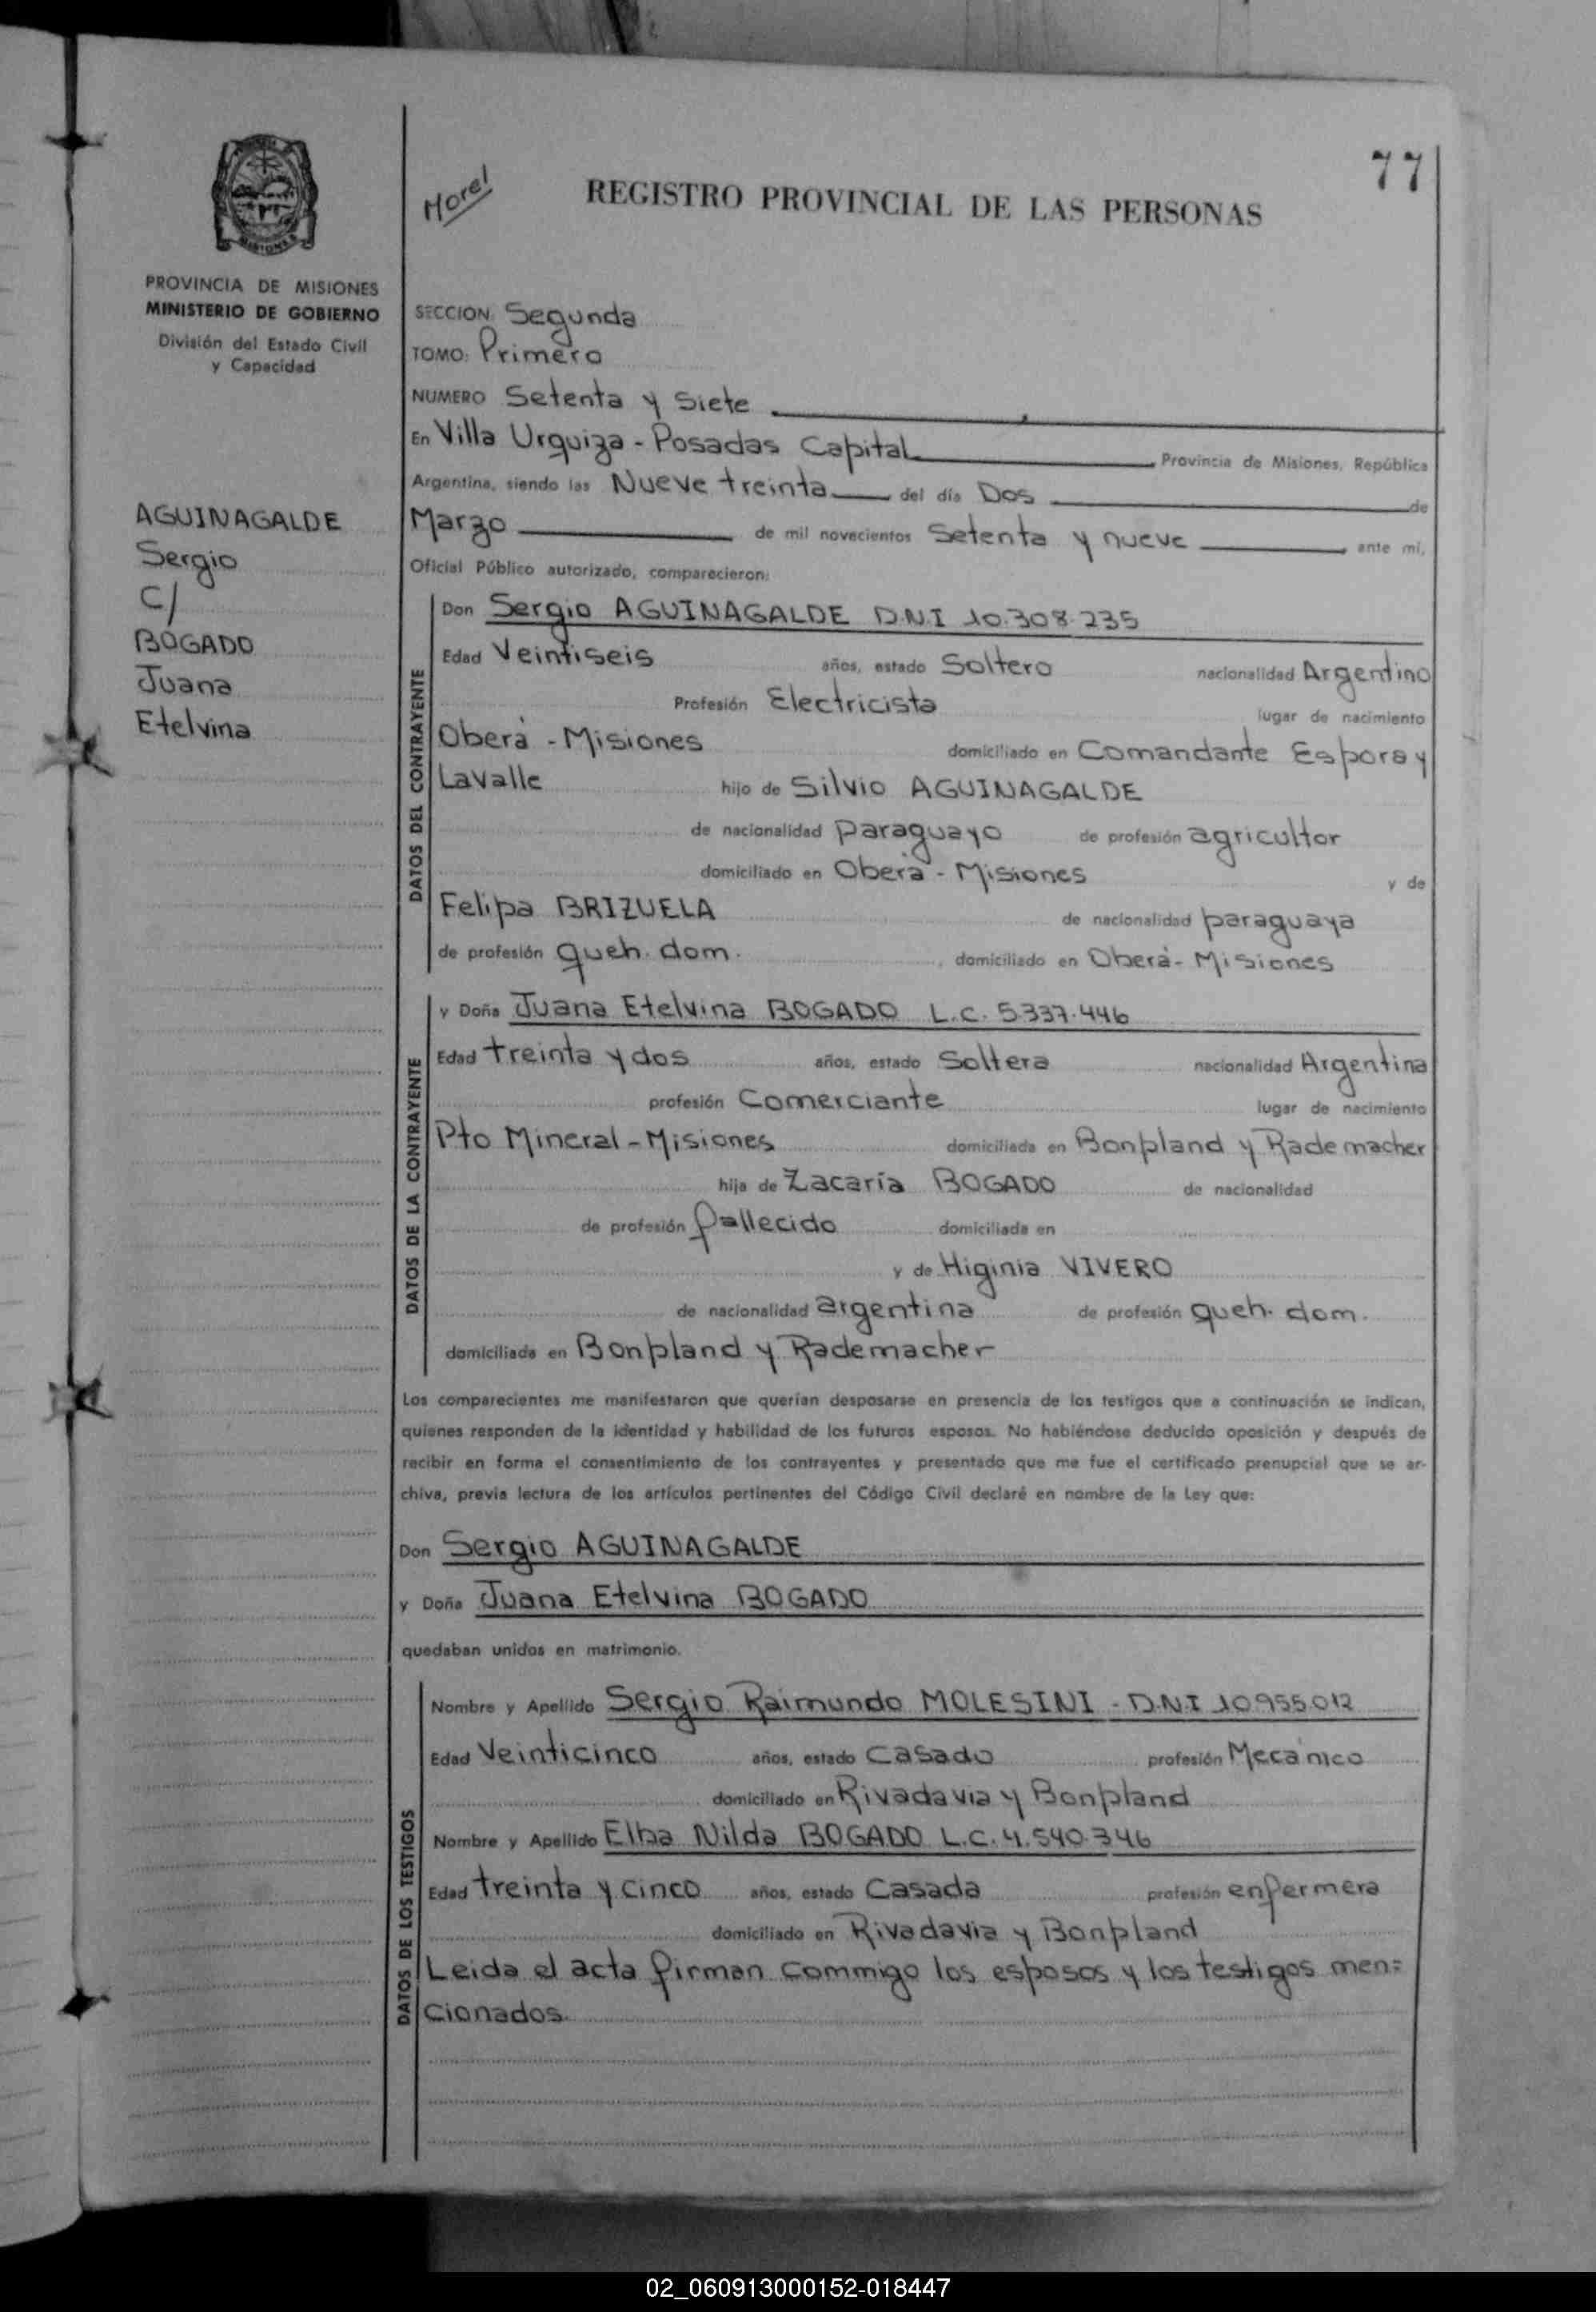 77
Morel
REGISTRO PROVINCIAL DE LAS PERSONAS
MISIONES
PROVINCIA DE MISIONES
MINISTERIO DE GOBIERNO
División del Estado Civil
y Capacidad
AGUINAGALDE
Sergio
C/
BOGADO
Juana
Etelvina
SECCION: Segunda
TOMO: Primero
NUMERO Setenta y Siete
En Villa Urquiza - Posadas Capital, Provincia de Misiones, República
Argentina, siendo las Nueve treinta del día Dos de
Marzo de mil novecientos Setenta y nueve, ante mí,
Oficial Público autorizado, comparecieron:
DATOS DEL CONTRAYENTE
Don Sergio AGUINAGALDE D.N.I 10.308.235
Edad Veintiseis años, estado Soltero nacionalidad Argentino
Profesión Electricista lugar de nacimiento
Oberá - Misiones domiciliado en Comandante Espora y
Lavalle hijo de Silvio AGUINAGALDE
de nacionalidad paraguayo de profesión agricultor
domiciliado en Oberá - Misiones y de
Felipa BRIZUELA de nacionalidad paraguaya
de profesión queh. dom. , domiciliado en Oberá - Misiones
DATOS DE LA CONTRAYENTE
y Doña Juana Etelvina BOGADO L.C. 5.337.446
Edad treinta y dos años, estado Soltera nacionalidad Argentina
profesión Comerciante lugar de nacimiento
Pto Mineral - Misiones domiciliada en Bonpland y Rademacher
hija de Zacaría BOGADO de nacionalidad
de profesión fallecido domiciliada en
y de Higinia VIVERO
de nacionalidad argentina de profesión queh. dom.
domiciliada en Bonpland y Rademacher
Los comparecientes me manifestaron que querían desposarse en presencia de los testigos que a continuación se indican,
quienes responden de la identidad y habilidad de los futuros esposos. No habiéndose deducido oposición y después de
recibir en forma el consentimiento de los contrayentes y presentado que me fue el certificado prenupcial que se ar-
chiva, previa lectura de los artículos pertinentes del Código Civil declaré en nombre de la Ley que:
Don Sergio AGUINAGALDE
y Doña Juana Etelvina BOGADO
quedaban unidos en matrimonio.
DATOS DE LOS TESTIGOS
Nombre y Apellido Sergio Raimundo MOLESINI - D.N.I 10.955.012
Edad Veinticinco años, estado Casado profesión Mecánico
domiciliado en Rivadavia y Bonpland
Nombre y Apellido Elba Nilda BOGADO L.C. 4.540.346
Edad treinta y cinco años, estado Casada profesión enfermera
domiciliado en Rivadavia y Bonpland
Leida el acta firman commigo los esposos y los testigos men=
cionados.
02_060913000152-018447